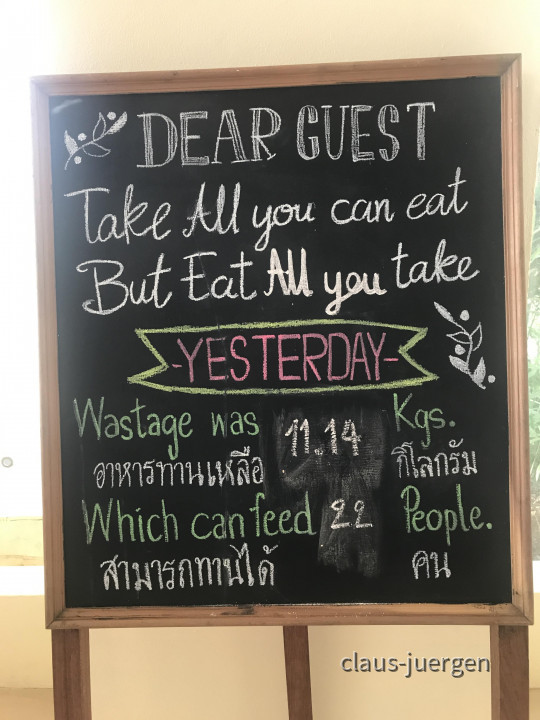 DEAR GUEST
Take All you can eat
But Eat All you take
-YESTERDAY-
Wastage was 11.14 Kgs.
อาหารทานเหลือ กิโลกรัม
Which can feed 22 People.
สามารถทานได้ คน
claus-juergen